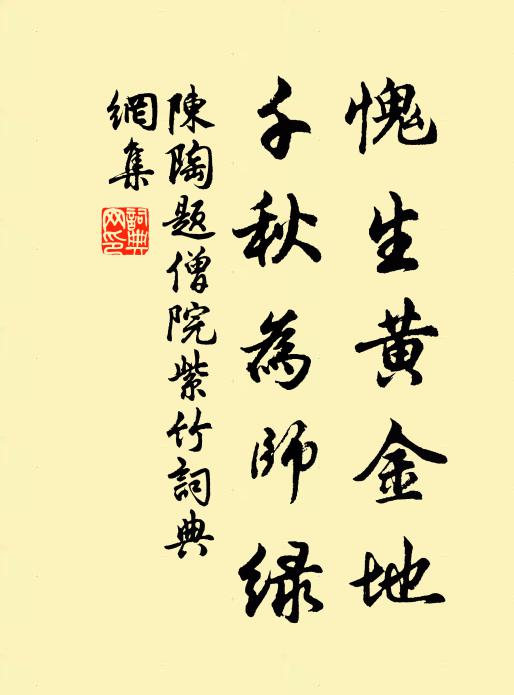 愧生黄金地
千秋為師绿
陳陶题僧院紫竹詞典
網集
詞典
网印